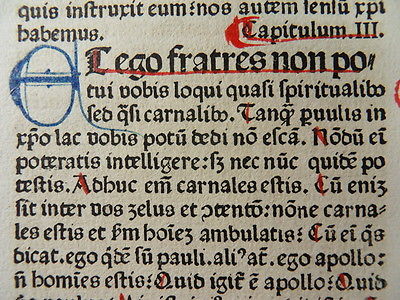 quis instruxit eum: nos autem sensũ xp̃i
habemus. Capitulum. III.
Et ego fratres non po-
tui vobis loqui quasi spiritualibꝰ
sed q̃si carnalibꝰ. Tanq̃ ꝑuulis in
xp̃o lac vobis potũ dedi nõ escã. Nõdũ eĩ
poteratis intelligere: sꝫ nec nũc quidẽ po
testis. Adhuc em̃ carnales estis. Cũ enĩ
sit inter vos zelus et ꝯtentõ: nõne carna-
les estis et ẞm hoiẽz ambulatis: Cũ eĩ q̃s
dicat. ego qdẽ sũ pauli. ali᷒ at̃. ego apollo:
ñ homĩes estis: Quid igit̃ ẽ apollo: Quid